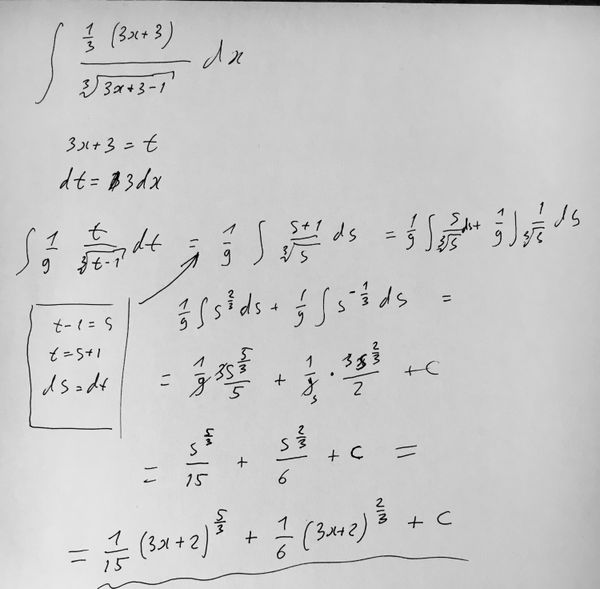 ∫ (1/3 (3x+3)) / ∛(3x+3-1) dx
3x+3 = t
dt = 3dx
∫ 1/9 t/∛(t-1) dt = 1/9 ∫ (s+1)/∛s ds = 1/9 ∫ s/∛s ds + 1/9 ∫ 1/∛s ds
t-1 = s
t = s+1
ds = dt
1/9 ∫ s^(2/3) ds + 1/9 ∫ s^(-1/3) ds =
= 1/9 3s^(5/3)/5 + 1/9 · 3s^(2/3)/2 + C
= s^(5/3)/15 + s^(2/3)/6 + C =
= 1/15 (3x+2)^(5/3) + 1/6 (3x+2)^(2/3) + C